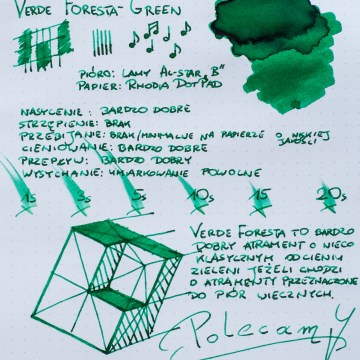 VERDE FORESTA-GREEN
PIÓRO: LAMY AL-STAR „B"
PAPIER: RHODIA DOTPAD
NASYCENIE: BARDZO DOBRE
STRZĘPIENIE: BRAK
PRZEBIJANIE: BRAK/MINIMALNE NA PAPIERZE O NISKIEJ JAKOŚCI
CIENIOWANIE: BARDZO DOBRE
PRZEPŁYW: BARDZO DOBRY
WYSYCHANIE: UMIARKOWANIE POWOLNE
1s 3s 5s 10s 15 20s
VERDE FORESTA TO BARDZO
DOBRY ATRAMENT O NIECO
KLASYCZNYM ODCIENIU
ZIELENI JEŻELI CHODZI
O ATRAMENTY PRZEZNACZONE
DO PIÓR WIECZNYCH.
Polecamy